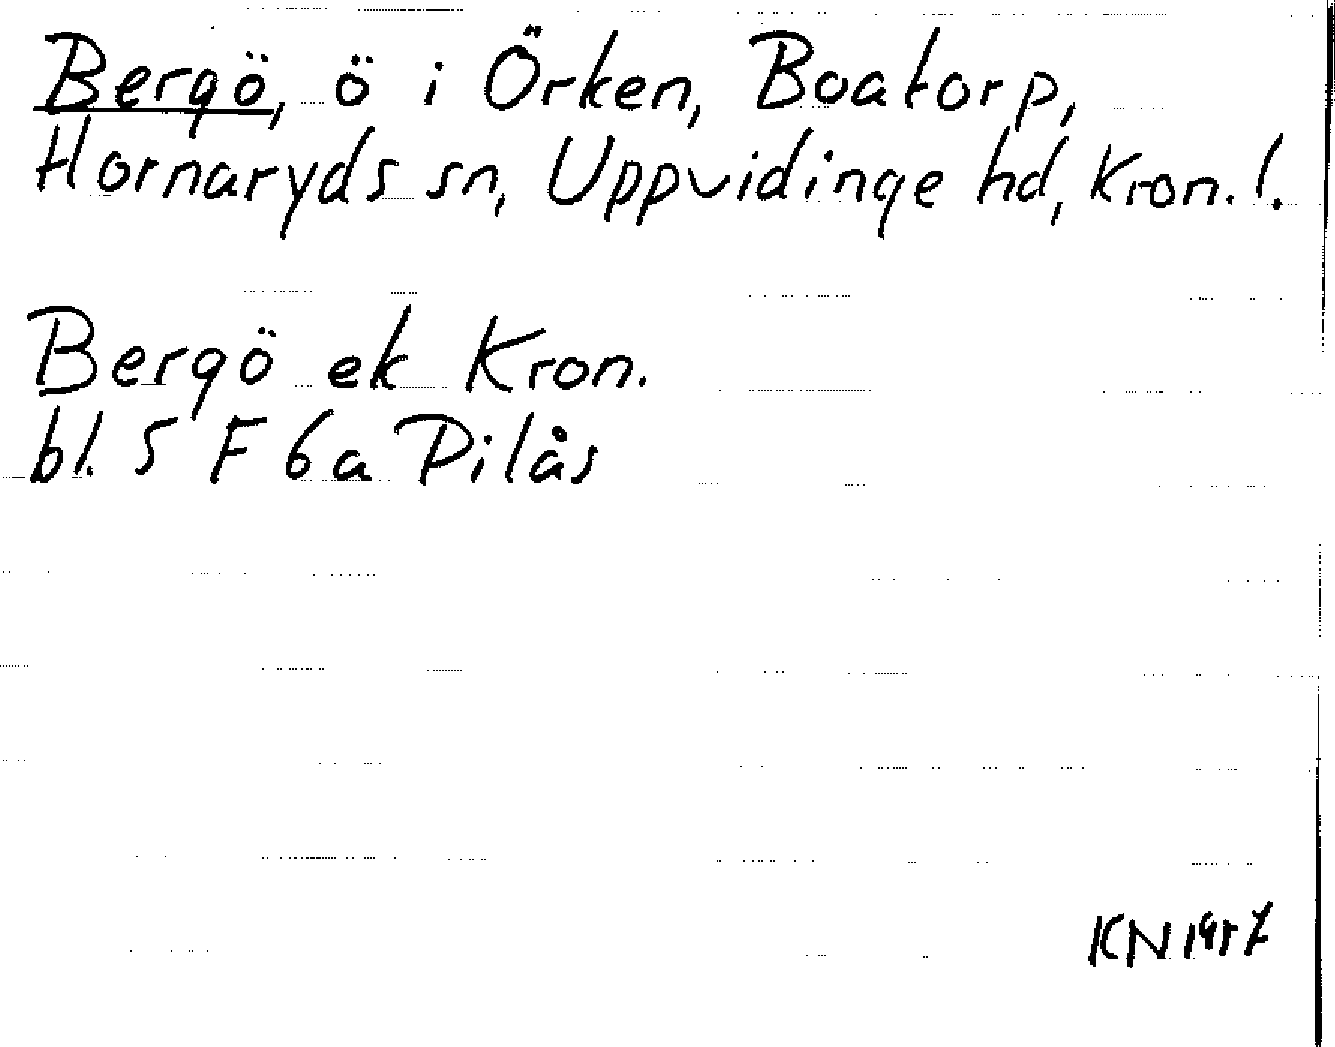 Bergö, ö i Örken, Boatorp,
Hornaryds sn, Uppvidinge hd, Kron. l.
Bergö ek Kron.
bl. 5 F 6a Pilås
KN